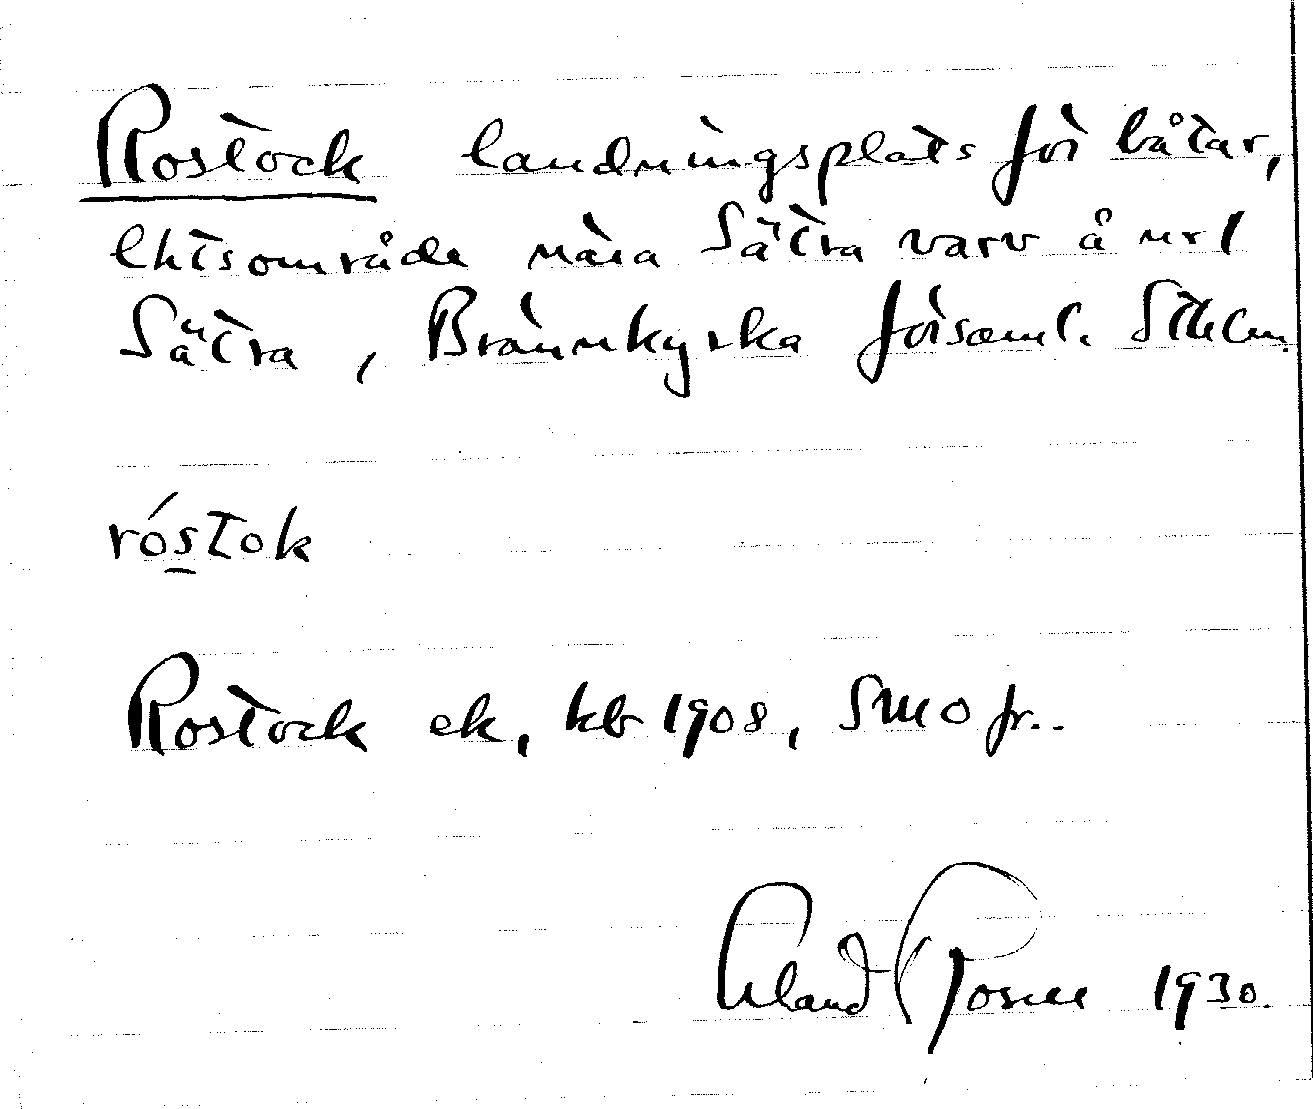 Rostock landningsplats för båtar,
lhtsområde nära Sätra varv å url
Sätra, Brännkyrka församl. Sthlm.
róstok
Rostock ek, kb 1908, SMO fr..
Erland Rosell 1930.